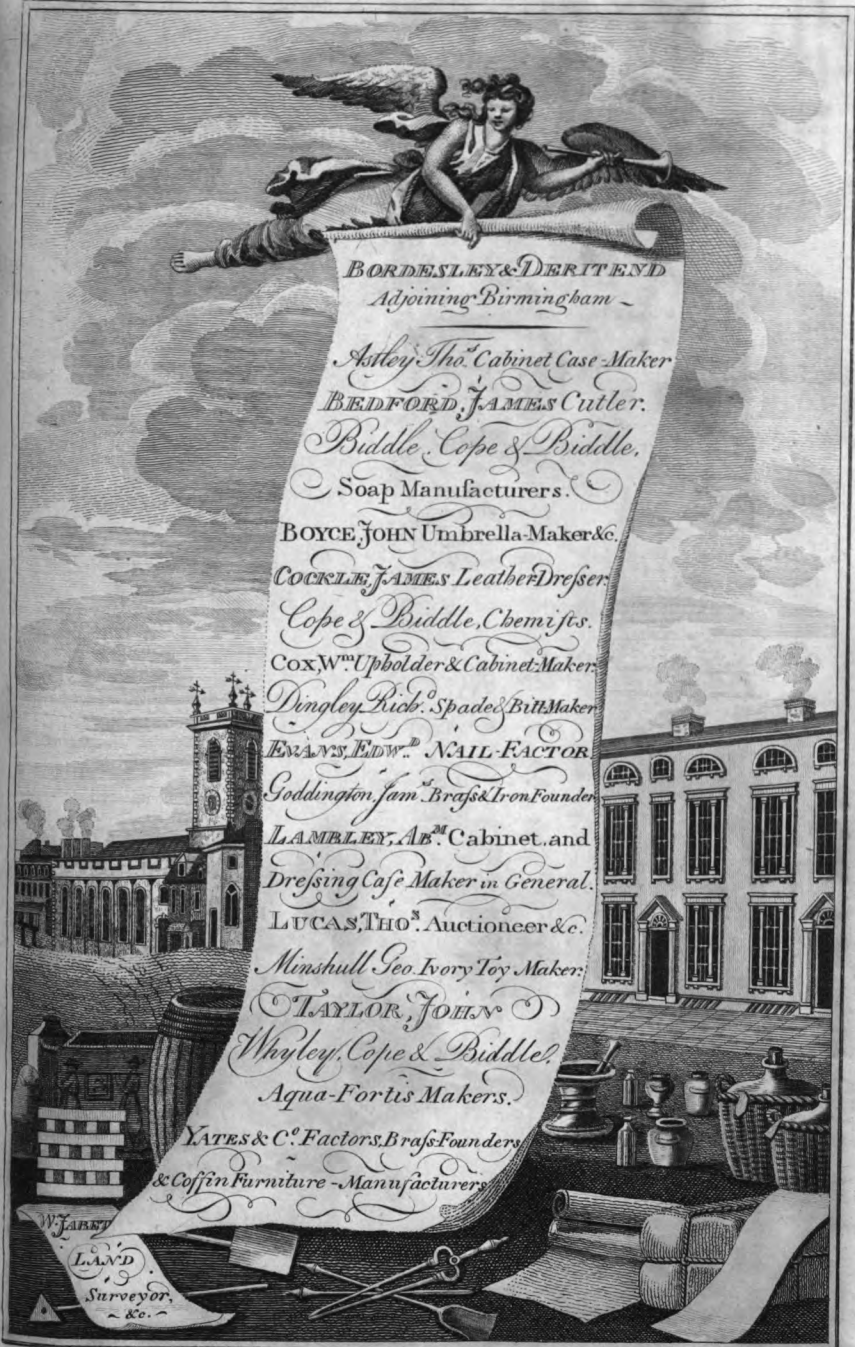 BORDESLEY & DERITEND
Adjoining Birmingham ~
Astley Thoˢ. Cabinet Case-Maker
BEDFORD, JAMES Cutler.
Biddle, Cope & Biddle,
Soap Manufacturers.
BOYCE, JOHN Umbrella-Maker &c.
COCKLE, JAMES Leather Dreſser.
Cope & Biddle, Chemiſts.
COX, Wᵐ. Upholder & Cabinet-Maker.
Dingley Richᵈ. Spade & Bitt Maker
EVANS, EDWᴰ. NAIL-FACTOR
Goddington, Jamˢ. Braſs & Iron Founder
LAMBLEY, ABᴹ. Cabinet, and
Dreſsing Caſe Maker in General.
LUCAS, THOˢ. Auctioneer &c.
Minshull Geo. Ivory Toy Maker.
TAYLOR, JOHN
Whyley, Cope & Biddle,
Aqua-Fortis Makers.
YATES & Cᵒ. Factors, Braſs-Founders
& Coffin Furniture-Manufacturers
W. JARET
LAND
Surveyor,
~ &c. ~